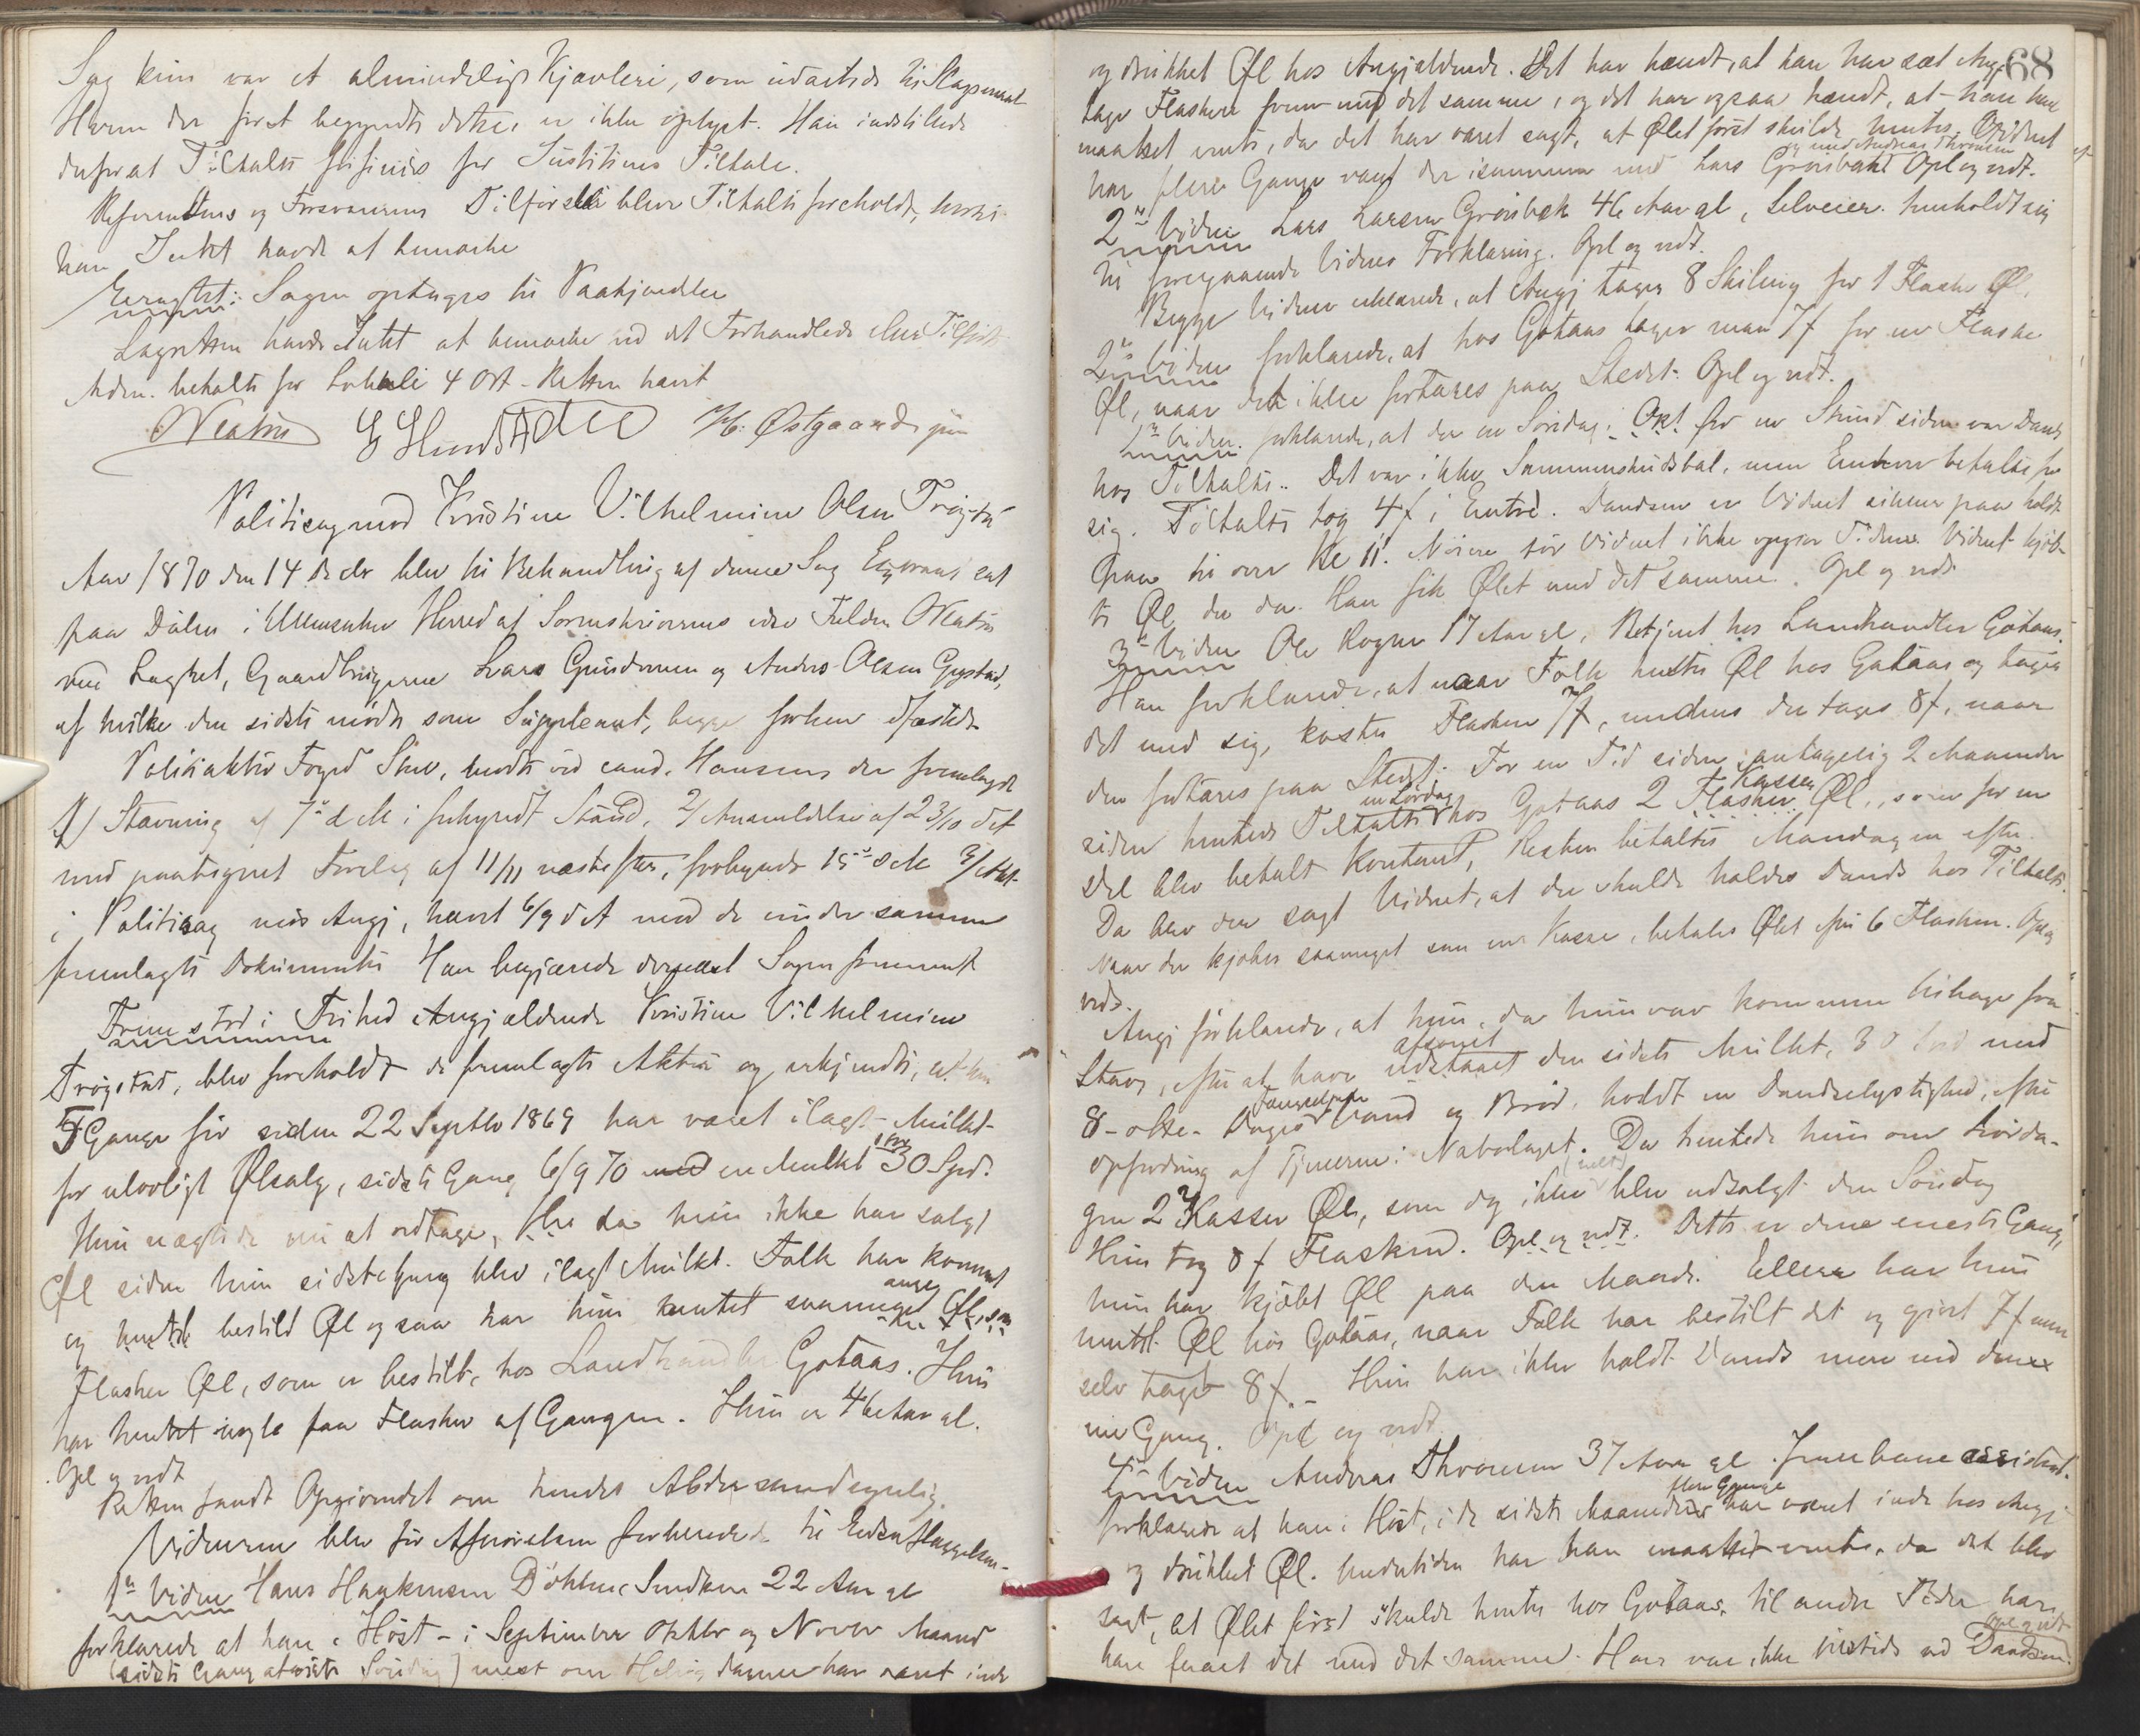 Sag kun var et almindeligt Kjævleri, som udartede til Slagsmaal
Hvem der først begyndte dette, er ikke oplyst. Han indstillede
derfor at Tiltalte frifindes for Justitiens Tiltale.
Referentens og Forsvarerens Tilførsel blev Tiltalte foreholdt, hvortil
han Intet havde at bemærke
Eragtet: Sagen optages til Paakjendelse
Lagretten havde Intet at bemærke ved det Forhandlede eller Tilførte
betalte for Lokale 4 Ort - Retten hævet
Østgaard
Politisag mod Kristine Vilhelmine Olsen Trøgstad
Aar 1870 den 14 Decbr blev til Behandling af denne Sag Extraret sat
paa Dølen i Ullensaker Herred af Sorenskriverens edsv Fuldm
ved Lagret, Gaardbrugerne Lars Gundersen og Anders Olsen Gystad,
af hvilke den sidste mødte som Suppleant, begge forhen edfæstede
Politiaktor Foged mødte ved cand. Hansen der fremlagde
1/ Stævning af 7de d M i forkyndt Stand, 2/ Anmeldelse af 23/10 d A
med paategnet Forelæg af 11/11 næstefter, forkyndt 15de s M 3/ Akt
i Politisag mod Angj, hævet 6/9 d A med de under samme
fremlagte Dokumenter Han begjærede dernæst Sagen fremmet
Fremstod i Frihed Angjældende Kristine Vilhelmine
Trøgstad, blev foreholdt de fremlagte Akter og erkjendte, at hun
5 Gange før siden 22 Septbr 1869 har været ilagt Mulkt
for ulovligt Ølsalg, sidste Gang 6/9 70 med en Mulkt stor 30 Spd.
Hun nægtede nu at vedtage, da hun ikke har solgt
Øl siden hun sidste Gang blev ilagt Mulkt. Folk har kommet
og hentet bestild Øl og saa har hun hentet saamange Øl, som
Flasker Øl, som er bestilt, hos Landhandler Gotaas. Hun
har hentet nogle faa Flasker af Gangen. Hun er 46 Aar gl.
Opl og vedt
Retten fandt Opgivendet om hendes Alder sandsynlig.
Vidnerne blev før Afhørelsen forberedede til Edsaflæggelsen.
1te Vidne Hans Haakensen Døhlen, Smeden 22 Aar gl
forklarede at han i Høst - i September Oktbr og Novbr Maaned
(sidste Gang sidste Søndag) mest om Helgedagene har været inde
68
og drukket Øl hos Angjældende. Det har hændt, at han har seet Angj
tage Flasken frem med det samme, og det har ogsaa hændt, at han har
maattet vente, da det har været sagt, at Ølet først skulde hentes. Vidnet
og med Andreas Thoresen
har flere Gange været der isammen med Lars Grønbæk Opl og vedt.
2det Vidne Lars Larsen Grønbæk 46 Aar gl, Selveier. henholdt sig
til foregaaende Vidnes Forklaring. Opl og vedt.
Begge Vidner erklærede, at Angj tager 8 Skilling for 1 Flaske Øl.
2det Vidne forklarede, at hos Gotaas tager man 7 ſ for en Flaske
Øl, naar det ikke fortæres paa Stedet. Opl og vedt.
1te Vidne forklarede, at der en Søndag i Okt for en Stund siden var Dands
hos Tiltalte. Det var ikke Sammenskudsbal, men Enhver betalte for
sig. Tiltalte tog 4 ſ i Entré. Dandsen er Vidnet sikker paa holdt
paa til over Kl 11. Nøiere tør Vidnet ikke opgive Tiden. Vidnet kjøb-
te Øl der da. Han fik Ølet med det samme. Opl og vedt
3die Vidne Ole Rogne 17 Aar gl, Betjent hos Landhandler Gotaas.
Han forklarede, at naar Folk hente Øl hos Gotaas og tager
det med sig, koster Flasken 7 ſ, medens der tages 8 ſ, naar
den fortæres paa Stedet. For en Tid siden, antagelig 2 Maaneder
siden hentede Tiltalte en Lørdag hos Gotaas 2 Flasker Kasser Øl, som for en
Del blev betalt kontant, Resten betaltes Mandagen efter.
Da blev der sagt Vidnet, at der skulde holdes Dands hos Tiltalte.
Naar der kjøbes saameget som en Kasse, betales Ølet med 6 Flasken. Opl og
vedt.
Angj forklarede, at hun, da hun var kommen tilbage fra
efter at have udstaaet afsonet den sidste Mulkt, 30 Spd med
8 - otte - Dages Fængsel paa Vand og Brød, holdt en Dandselystighed, efter
Opfordring af Tjenerne i Nabolaget. Da hentede hun om Lørda-
gen 2 Kasser Øl, som dog ikke (helt) blev udsolgt den Søndag
Hun tog 8 ſ Flasken. Opl og vedt. Dette er den eneste Gang,
hun har kjøbt Øl paa den Maade. Ellers har hun
hentet Øl hos Gotaas, naar Folk har bestilt det og givet 7 ſ men
selv taget 8 ſ. - Hun har ikke holdt Dands mere end denne
ene Gang. Opl og vedt
4de Vidne Andreas Thoresen 37 Aar gl Jernbaneassistent.
forklarede at han i Høst, i de sidste Maaneder flere Gange har været inde hos Angj
og drukket Øl. Undertiden har han maattet vente, da det blev
sagt, at Ølet først skulde hentes hos Gotaas, til andre Tider har
han faaet det med det samme. Han var ikke tilstede ved Dandsen. Opl og vedt